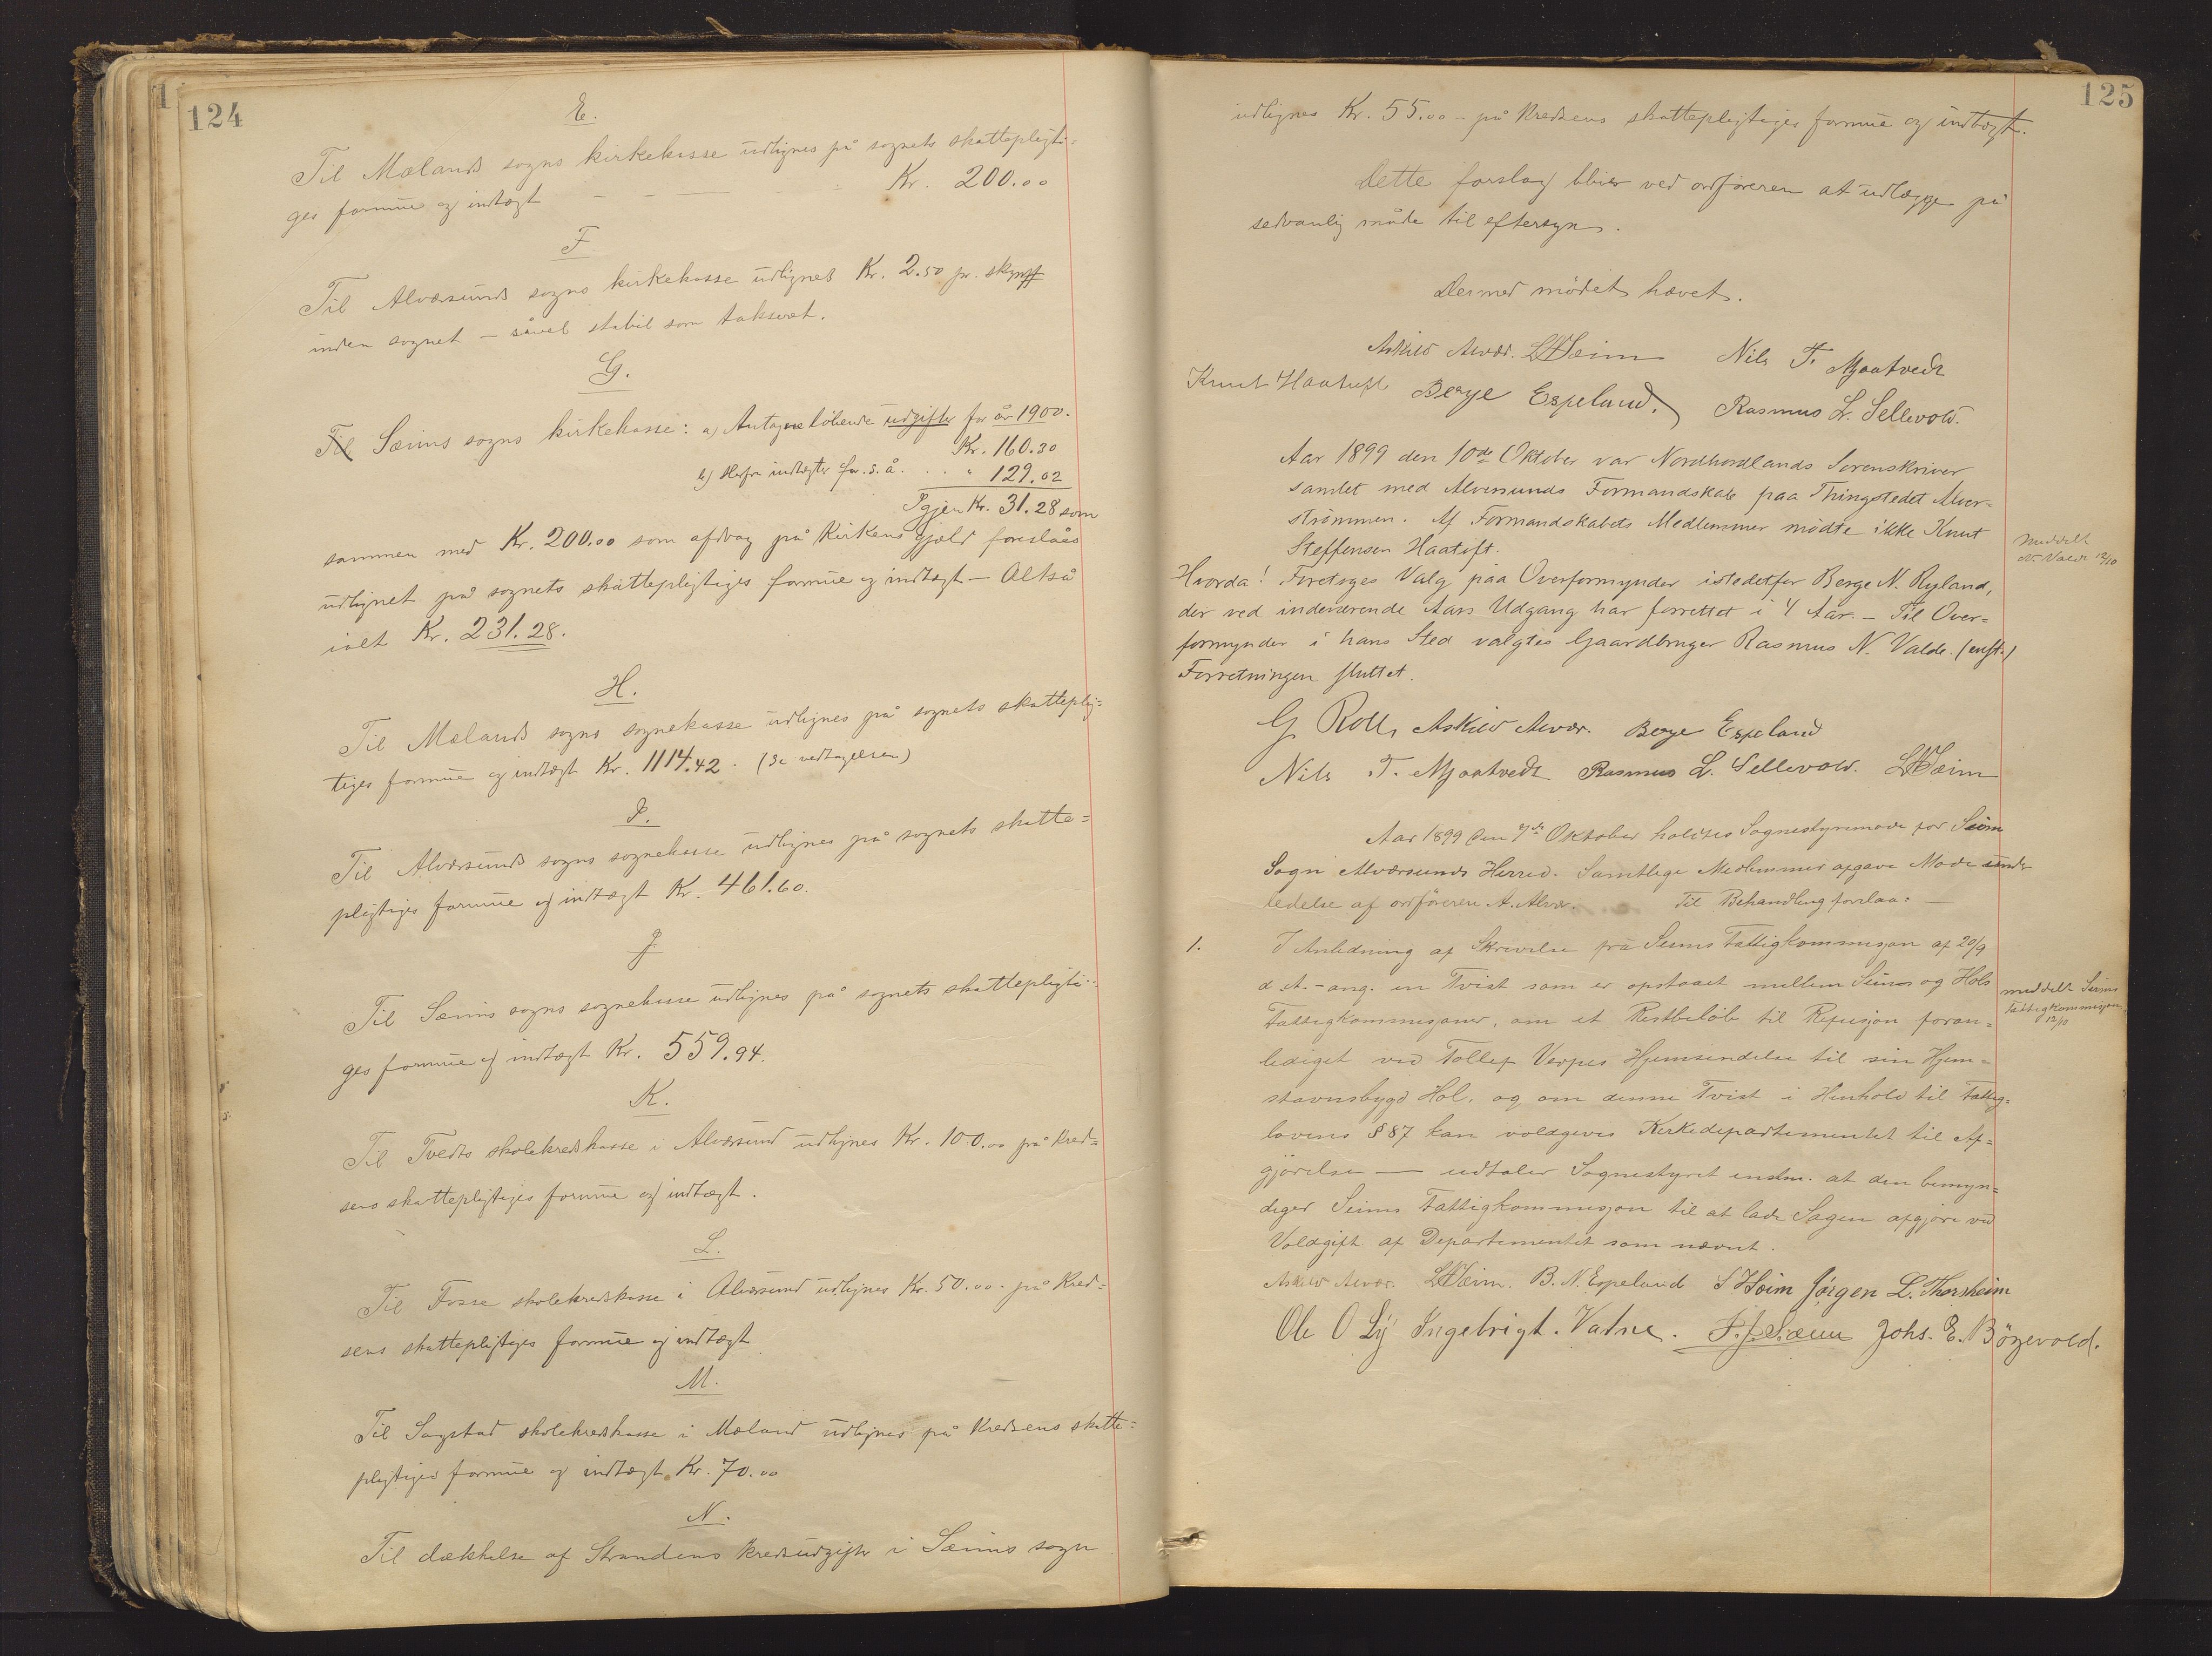 124
E.
Til Mælands sogns kirkekasse udlignes på sognets skattepligti=
ges formue og indtægt Kr. 200.00
F
Til Alværsunds sogns kirkekasse udlignes Kr. 2.50 pr. skyns
inden sognet – såvel stabil som takseret.
G.
Til Sæims sogns kirkekasse: a) Antagne löbende udgifter for år 1900.
Kr. 160.30
b) Herfra indtægter for s. å. . . " 129.02
Igjen Kr. 31.28 som
sammen med Kr. 200.00 som afdrag på Kirkens gjæld foreslåes
udlignet på sognets skattepligtiges formue og indtægt – Altså
ialt Kr. 231.28.
H.
Til Mælands sogns sognekasse udlignes på sognets skatteplig=
tiges formue og indtægt Kr. 1114.42. (Se vedtagelsen)
I.
Til Alværsunds sogns sognekasse udlignes på sognets skatte=
pligtiges formue og indtægt Kr. 461.60.
J
Til Sæims sogns sognekasse udlignes på sognets skattepligti=
ges formue og indtægt Kr. 559.94.
K.
Til Tvedts skolekredskasse i Alværsund udlignes Kr. 100.00 på Kred=
sens skattepligtiges formue og indtægt.
L.
Til Fosse skolekredskasse i Alværsund udlignes Kr. 50.00 på Kred=
sens skattepligtiges formue og indtægt
M.
Til Sagstad skolekredskasse i Mæland udlignes på Kredsens skatte=
pligtiges formue og indtægt Kr. 70.00
N.
Til dækkelse af Strandens kredsudgifter i Sæims sogn
125
udlignes Kr. 55.00 – på Kredsens skattepligtiges formue og indtægt.
Dette forslag bliver ved ordföreren at udlægge på
sedvanlig måde til eftersyn.
Dermed mödet hævet.
Askild Alvær. L H Sæim Nils T. Mjaatvedt
Knut Haatuft Berge Espeland. Rasmus L. Sellevold.
Aar 1899 den 10de Oktober var Nordhordlands Sorenskriver
samlet med Alversunds Formandskab paa Thingstedet Alver=
strömmen. Af Formandskabets Medlemmer mödte ikke Knut
Steffensen Haatoft.
Meddelt
N. Valde 12/10
Hvorda! Foretoges Valg paa Overformynder istedetfor Berge N. Ryland,
der ved indeværende Aars Udgang har forrettet i 4 Aar. – Til Over=
formynder i hans Sted valgtes Gaardbruger Rasmus N. Valde. (enst.)
Forretningen sluttet.
G Roll, Askild Alvær. Berge Espeland
Nils T. Mjaatvedt Rasmus L. Sellevold. L H Sæim
Aar 1899 den 7de Oktober holdtes Sognestyremöde for Seim
Sogn Alværsunds Herred. Samtlige Medlemmer afgave Möde under
ledelse af ordföreren A. Alvær. Til Behandling forelaa: –
1. I Anledning af Skrivelse fra Seims Fattigkommisjon af 20/9
d. A. – ang. en Tvist som er opstaaet mellem Seims og Hols
meddelt Seims
Fattigkommisjon
12/10
Fattigkommisjoner, om et Restbelöb til Refusjon foran=
lediget ved Tollef Verpes Hjemsendelse til sin Hjem=
stavnsbygd Hol, og om denne Tvist i Henhold til Fattig=
lovens § 87 kan voldgives Kirkedepartementet til Af=
gjörelse — udtaler Sognestyret endm. at den bemyn=
diger Seims Fattigkommisjon til at lade Sagen afgjöre ved
Voldgift af Departementet som nævnt.
Askild Alvær. L H Sæim. B. N. Espeland S Hoim Jörgen L. Thorsheim
Ole O Lÿ Ingebrigt. Vatne. Johs. E. Bögevold.